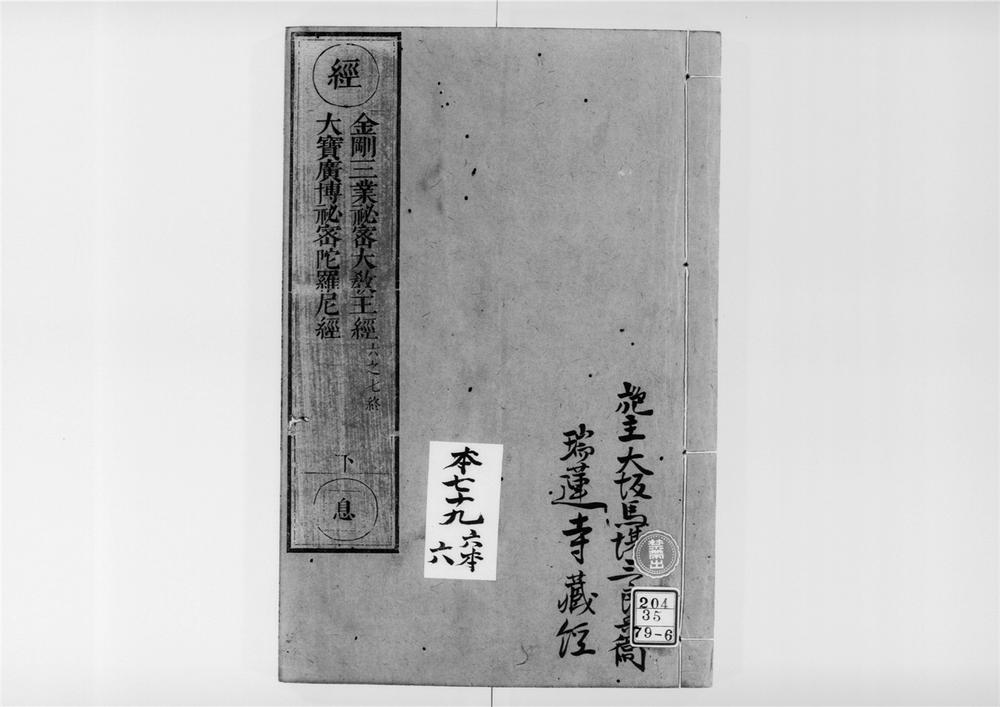 經
金剛三業祕密大教王經 六之七終
大寶廣博祕密陀羅尼經
下
息
本七十九 六本
六
施主大坂馬場三郎
瑞蓮寺藏經
禁帶出
204
35
79-6